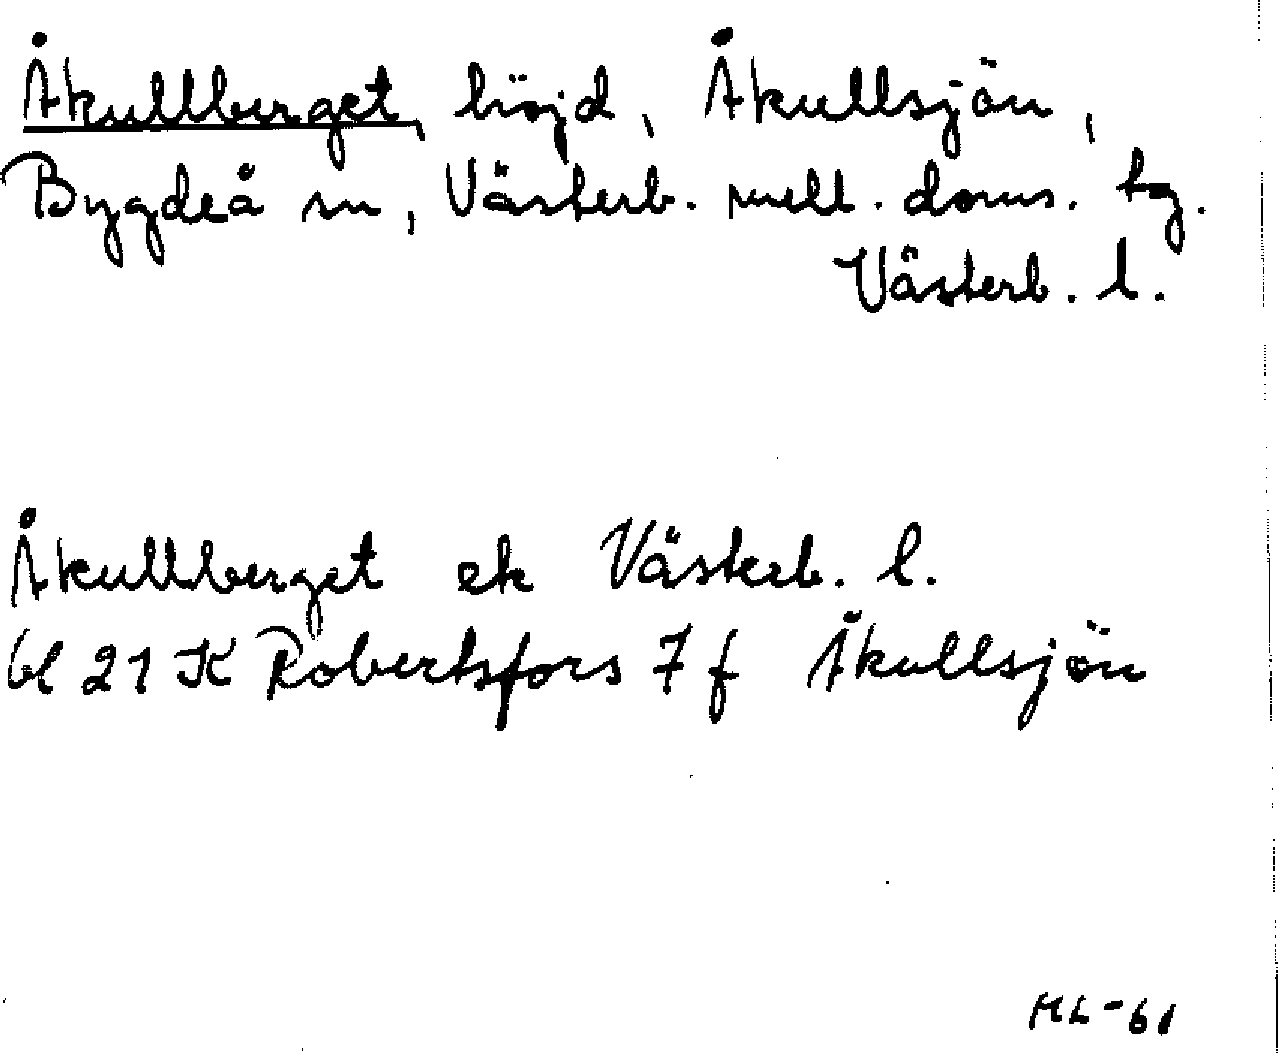 Åkullberget, höjd, Åkullsjön,
Bygdeå sn, Västerb. mell. doms. tg.
Västerb. l.
Åkullberget ek Västerb. l.
bl 21 K Robertsfors 7 f Åkullsjön
HL-61